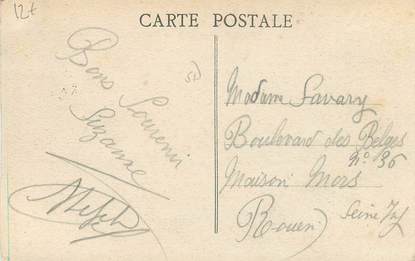 12t
CARTE POSTALE
Bons Souvenir
Suzanne
Madame Savary
Boulevard des Belges
n° 36
Maison Mors
Rouen
Seine Inf